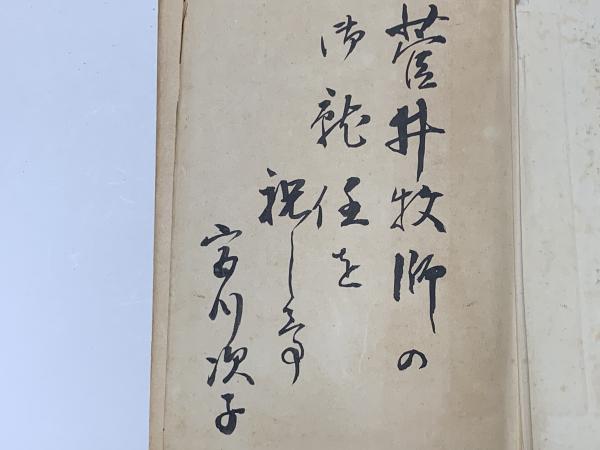 菅井牧師の
御就任を
祝し
宮川次子